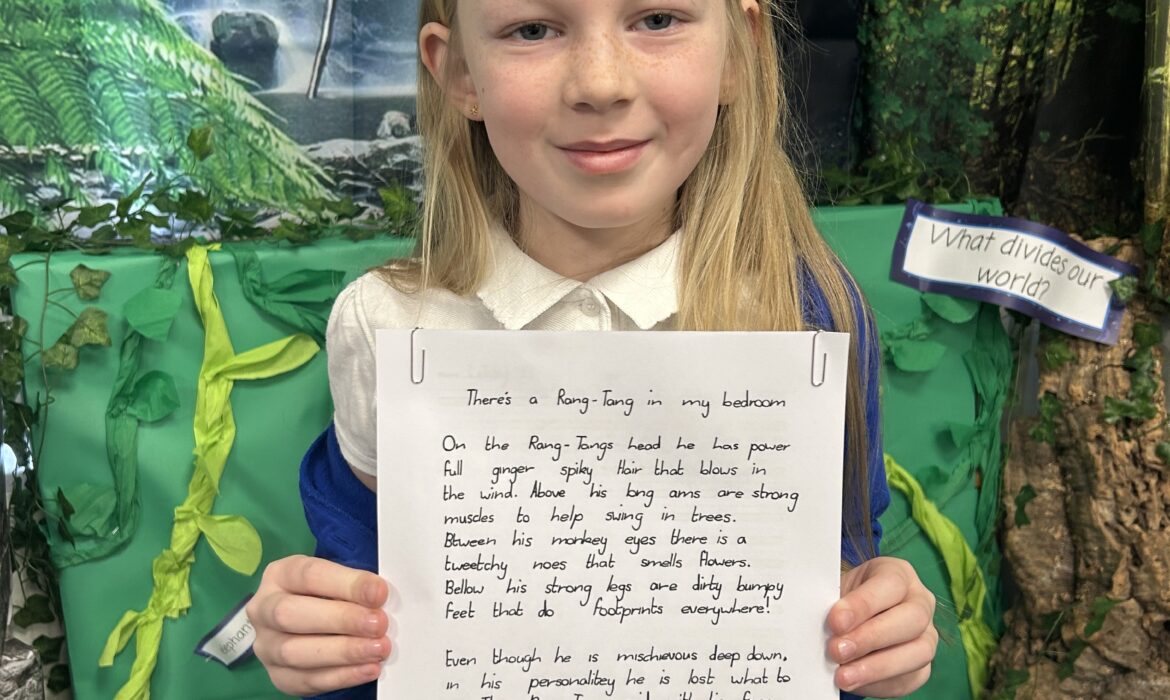 What divides our
world?
There's a Rang-Tang in my bedroom
On the Rang-Tangs head he has power
full ginger spiky Hair that blows in
the wind. Above his long ams are strong
muscles to help swing in trees.
Btween his monkey eyes there is a
tweetchy noes that smells flowers.
Bellow his strong legs are dirty bumpy
feet that do footprints everywhere!
Even though he is mischievous deep down,
in his personalitey he is lost what to